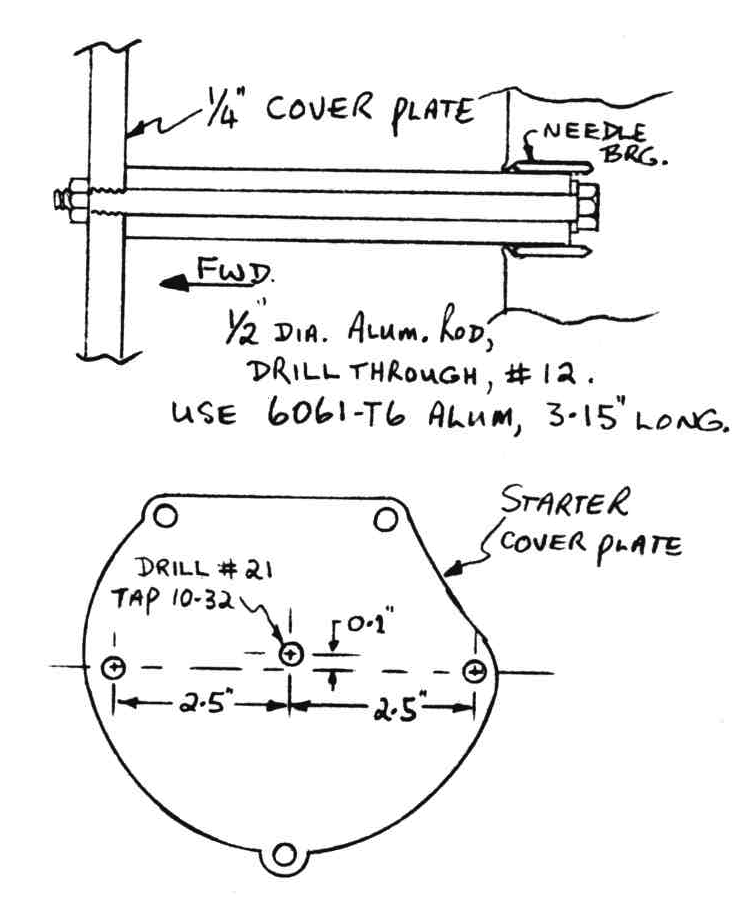 1/4" COVER PLATE
NEEDLE
BRG.
FWD.
1/2" DIA. ALUM. ROD,
DRILL THROUGH, #12.
USE 6061-T6 ALUM, 3.15" LONG.
STARTER
COVER PLATE
DRILL #21
TAP 10-32
0.1"
2.5"
2.5"